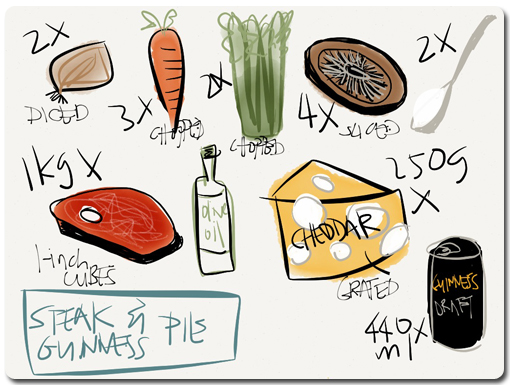 2X
DICED
3X
CHOPPED
2X
CHOPPED
4X
SLICED
2X
1kg X
1-inch
CUBES
olive
oil
250g
X
CHEDDAR
GRATED
GUINNESS
DRAFT
440 X
ml
STEAK & PIE
GUINNESS